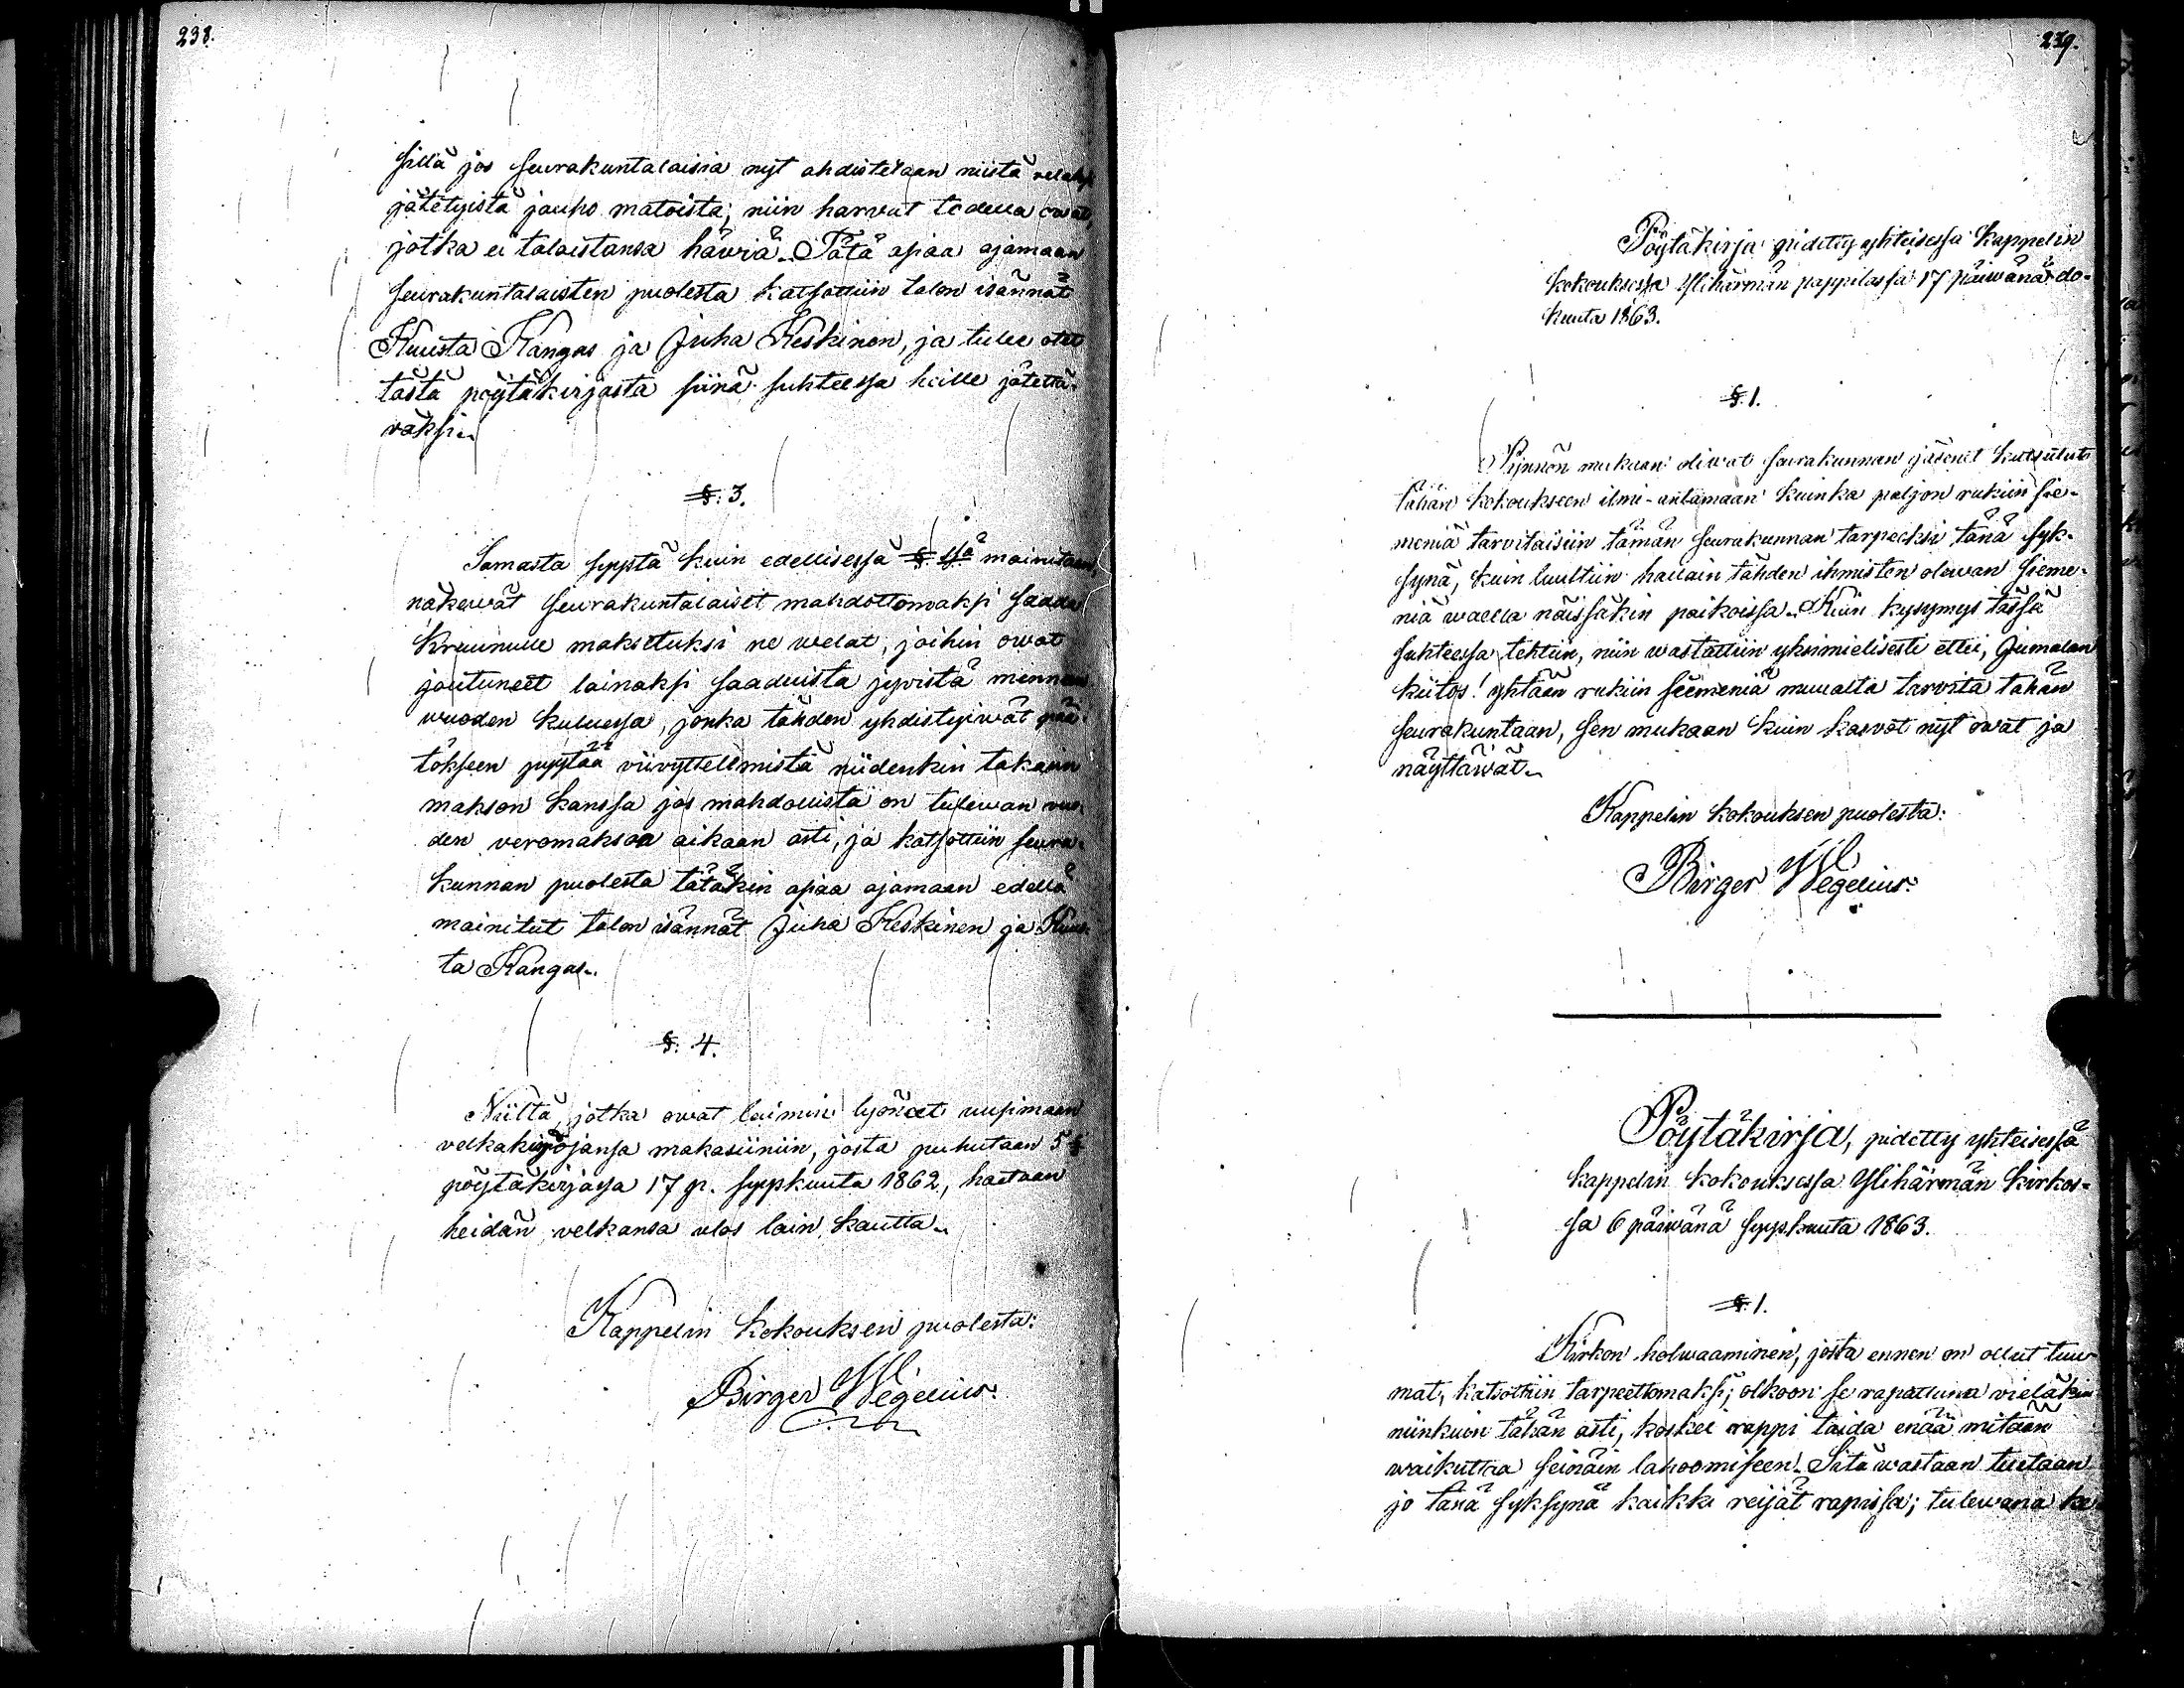 238.
sillä jos seurakuntalaisia nyt ahdistetaan niistä velaksi
jätetyistä jauho matoista; niin harvat todella owat,
jotka ei talaistansa häwiä. Tätä asiaa ajamaan
seurakuntalaisten puolesta katsottiin talon isännät
Kuusta Kangas ja Juha Keskinen, ja tulee otet
tästä pöytäkirjasta siinä suhteessa heille jätettä-
väksi.
§. 3.
Samasta syystä kuin edellisessä §:ssä mainitaan,
näkewät seurakuntalaiset mahdottomaksi saada
kruunulle maksetuksi ne welat, joihin owat
joutuneet lainaksi saaduista jywistä mennen
wuoden kuluessa, jonka tähden yhdistyiwät pää-
tökseen pyytää viivyttelemistä niidenkin takasin
makson kanssa jos mahdollista on tulewan vuo-
den veromakson aikaan asti, ja katsottiin seura-
kunnan puolesta tätäkin asiaa ajamaan edellä
mainitut talon isännät Juha Keskinen ja Kuus-
ta Kangas.
§. 4.
Niiltä, jotka owat laimin lyöneet uusimaan
velkakirjojansa makasiiniin, josta puhutaan 5 §
pöytäkirjassa 17 p. syyskuuta 1862, haetaan
heidän velkansa ulos lain kautta.
Kappelin kokouksen puolesta:
Birger Wegelius.
239.
Pöytäkirja pidetty yhteisessä Kappelin
kokouksessa Ylihärmän pappilassa 17 päiwänä elo-
kuuta 1863.
§. 1.
Pynnön mukaan oliwat seurakunnan jäsenet kutsutut
tähän kokoukseen ilmi-antamaan kuinka paljon rukiin sie-
meniä tarvitaisiin tämän seurakunnan tarpeeksi tänä syk-
synä, kuin luultiin hallain tähden ihmisten olewan sieme-
niä wailla näissäkin paikoissa. Kuin kysymys tässä
suhteessa tehtiin, niin wastattiin yksimielisesti ettei, Jumalan
kiitos! yhtään rukiin siemeniä muualta tarvita tähän
seurakuntaan, sen mukaan kuin kasvot nyt owat ja
näyttäwät.
Kappelin kokouksen puolesta:
Birger Wegelius.
Pöytäkirja, pidetty yhteisessä
kappelin kokouksessa Ylihärmän kirkos-
sa 6 päiwänä syyskuuta 1863.
§. 1.
Kirkon holwaaminen, josta ennen on ollut tuu-
mat, katsottiin tarpeettomaksi; olkoon se rapattuna vieläkin
niinkuin tähän asti, koskei rappi taida enää mitään
waikuttaa seinäin lahoomiseen. Sitä wastaan tuetaan
jo tänä syksynä kaikki reijät rapissa; tulewana ke-